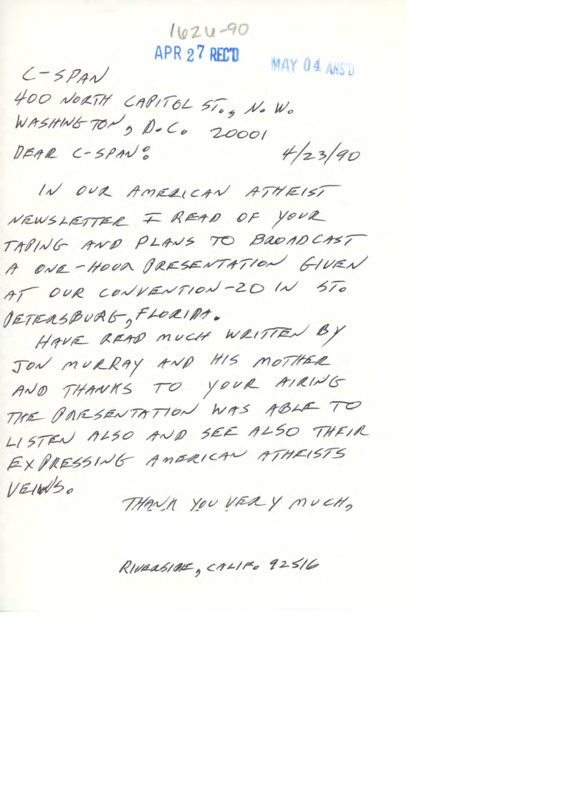 1624-90
APR 27 REC'D
MAY 04 ANS'D
C-SPAN
400 NORTH CAPITOL ST., N.W.
WASHINGTON, D.C. 20001
DEAR C-SPAN: 4/23/90
IN OUR AMERICAN ATHEIST
NEWSLETTER I READ OF YOUR
TAPING AND PLANS TO BROADCAST
A ONE-HOUR PRESENTATION GIVEN
AT OUR CONVENTION-20 IN ST.
PETERSBURG, FLORIDA.
HAVE READ MUCH WRITTEN BY
JON MURRAY AND HIS MOTHER
AND THANKS TO YOUR AIRING
THE PRESENTATION WAS ABLE TO
LISTEN ALSO AND SEE ALSO THEIR
EXPRESSING AMERICAN ATHEISTS
VEIWS.
THANK YOU VERY MUCH,
RIVERSIDE, CALIF. 92516